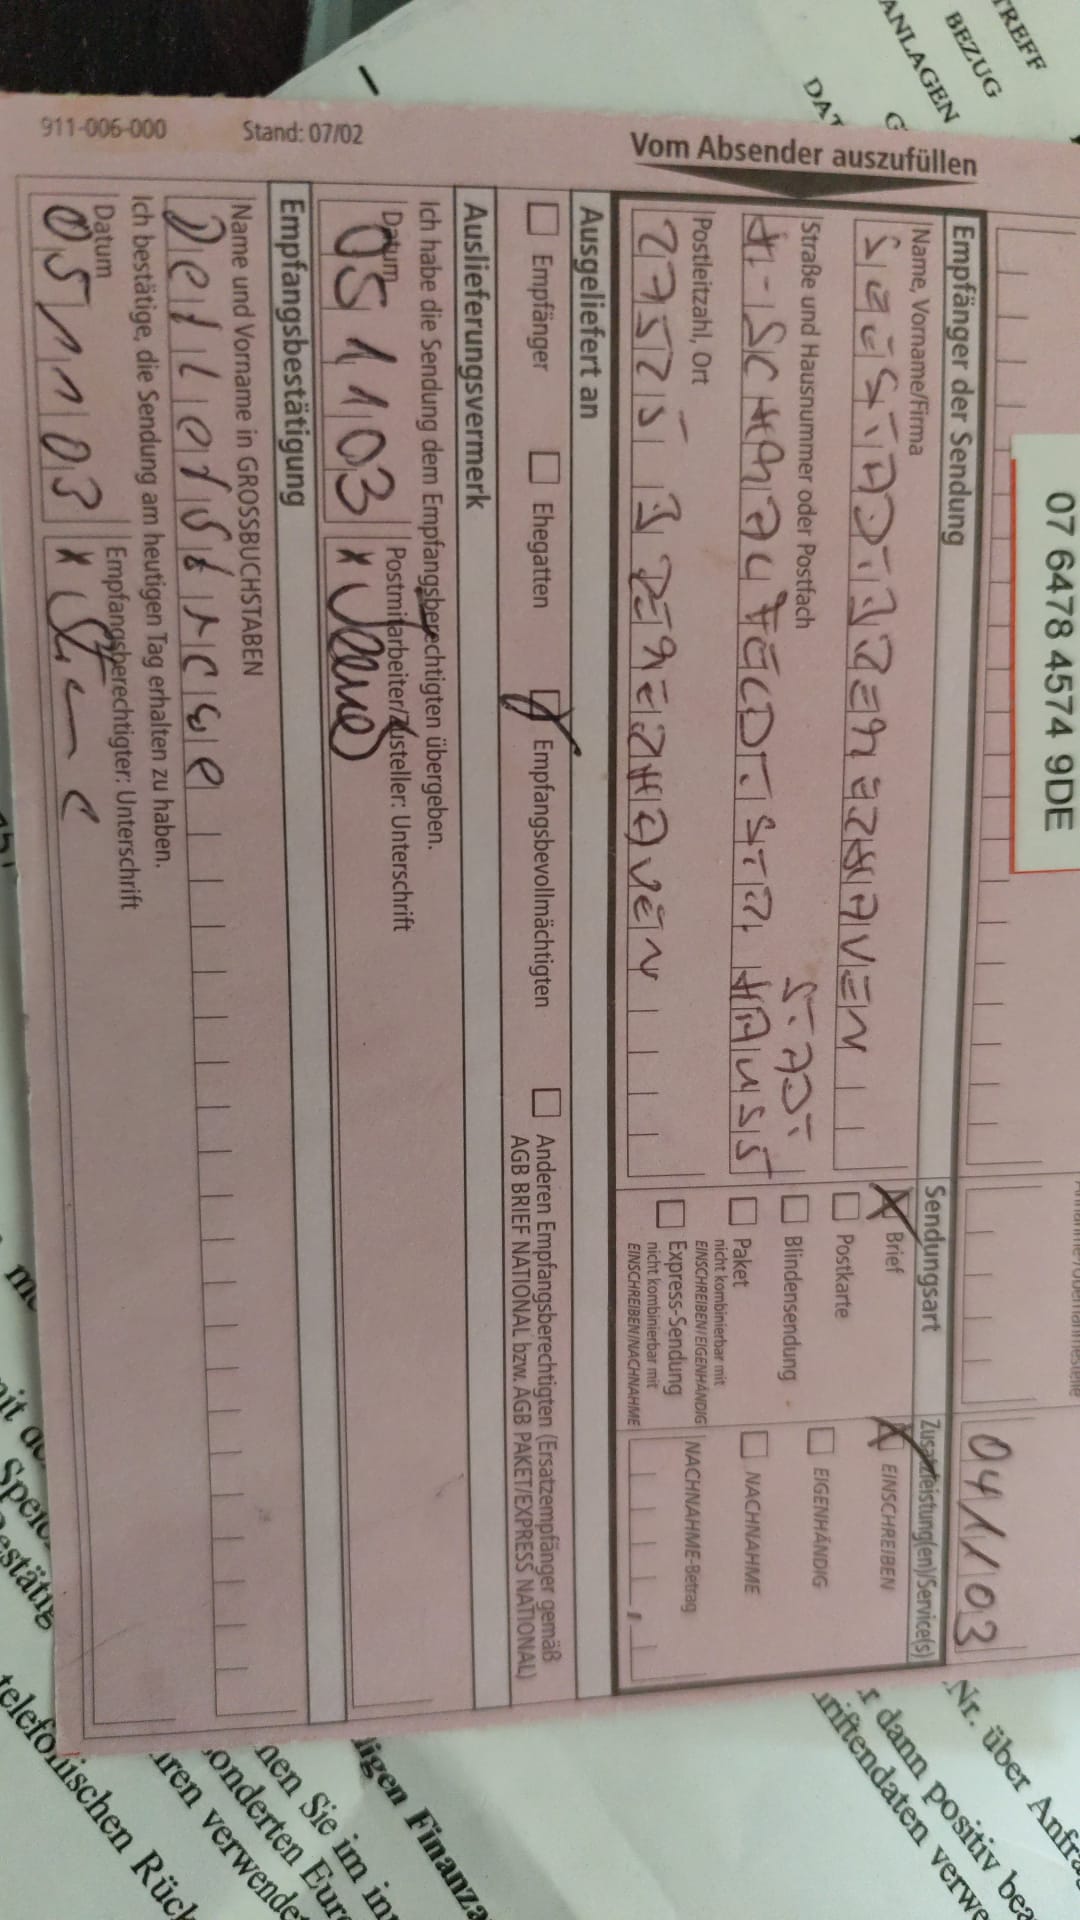 TREFF
BEZUG
ANLAGEN
07 6478 4574 9DE
04 11 03
Vom Absender auszufüllen
Empfänger der Sendung
Name, Vorname/Firma
SEESTADT BREMERHAVEN
Straße und Hausnummer oder Postfach
STADT
H-SCHMALFELDT. STR. HAUS 5
Postleitzahl, Ort
27525 BREMERHAVEN
Sendungsart
Brief
Postkarte
Blindensendung
Paket
nicht kombinierbar mit
EINSCHREIBEN/EIGENHÄNDIG
Express-Sendung
nicht kombinierbar mit
EINSCHREIBEN/NACHNAHME
Zusatzleistung(en)/Service(s)
EINSCHREIBEN
EIGENHÄNDIG
NACHNAHME
NACHNAHME-Betrag
Ausgeliefert an
Empfänger
Ehegatten
Empfangsbevollmächtigten
Anderen Empfangsberechtigten (Ersatzempfänger gemäß
AGB BRIEF NATIONAL bzw. AGB PAKET/EXPRESS NATIONAL)
Auslieferungsvermerk
Ich habe die Sendung dem Empfangsberechtigten übergeben.
Datum
Postmitarbeiter/Zusteller: Unterschrift
05 11 03 x
Empfangsbestätigung
Name und Vorname in GROSSBUCHSTABEN
Ich bestätige, die Sendung am heutigen Tag erhalten zu haben.
Datum
Empfangsberechtigter: Unterschrift
05 11 03 x
911-006-000
Stand: 07/02
Nr. über Anfra
r dann positiv bea
igen Finanza
nen Sie im in
onderten Eur
telefonischen Rück